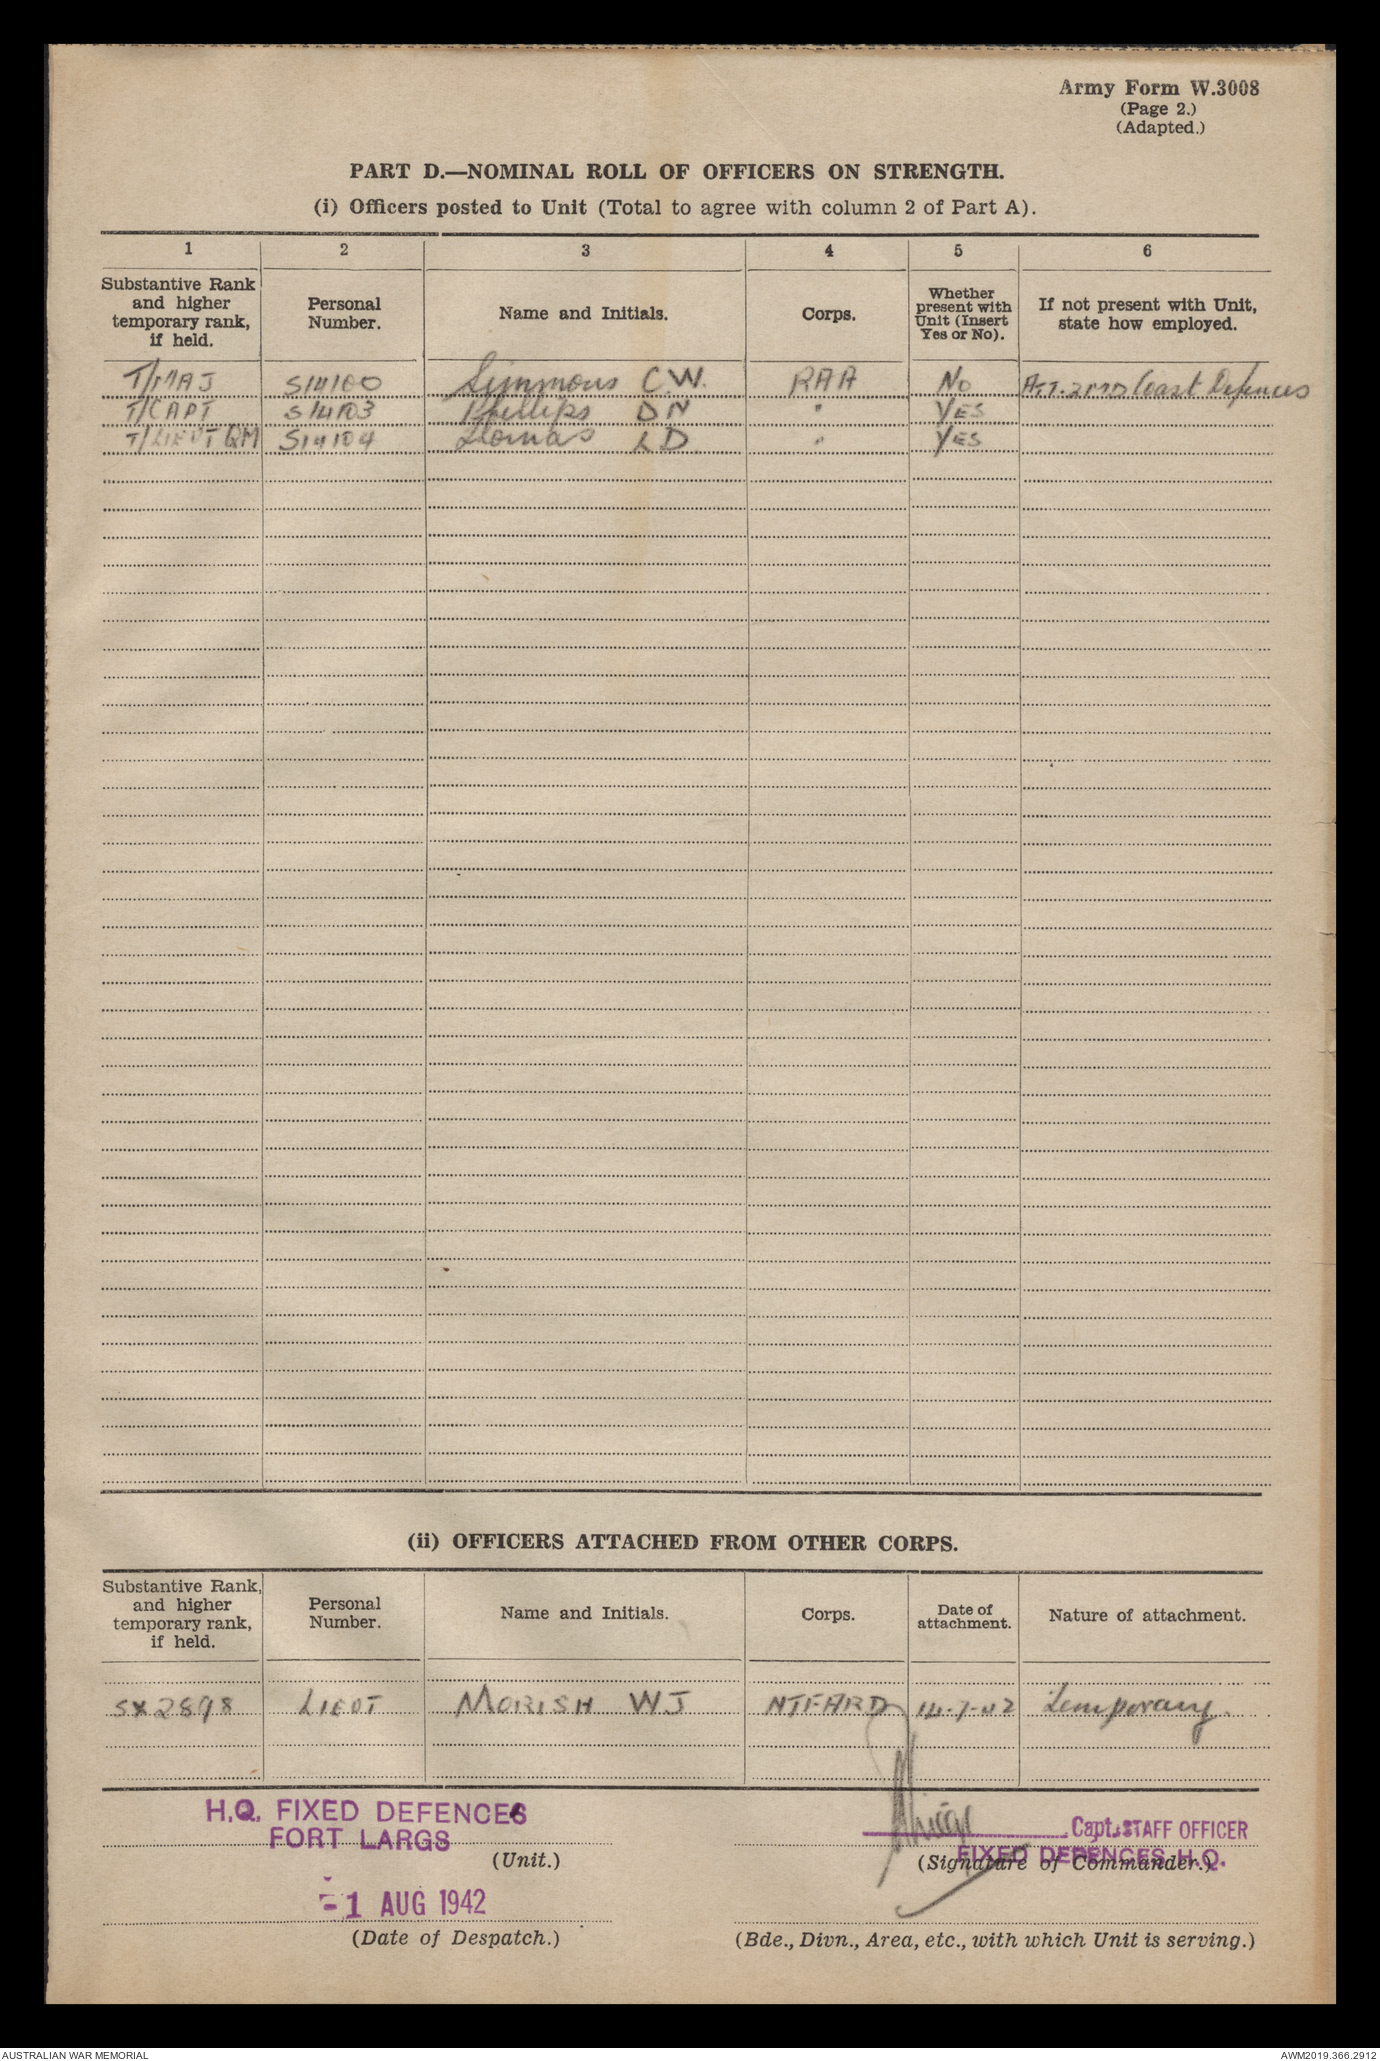 Army Form W.3008
(Page 2.)
(Adapted.)
PART D.—NOMINAL ROLL OF OFFICERS ON STRENGTH.
(i) Officers posted to Unit (Total to agree with column 2 of Part A).
1 2 3 4 5 6
Substantive Rank and higher temporary rank, if held. Personal Number. Name and Initials. Corps. Whether present with Unit (Insert Yes or No). If not present with Unit, state how employed.
T/MAJ S14100 Simmons C.W. RAA No Att. Coast Defences
T/CAPT S14103 Phillips DN " YES
T/LIEUT QM S14104 LD " YES
(ii) OFFICERS ATTACHED FROM OTHER CORPS.
Substantive Rank, and higher temporary rank, if held. Personal Number. Name and Initials. Corps. Date of attachment. Nature of attachment.
SX2898 LIEUT MORISH WJ 14-7-42 Temporary.
H.Q. FIXED DEFENCES
FORT LARGS
(Unit.)
Capt. STAFF OFFICER
FIXED DEFENCES H.Q.
(Signature of Commander.)
-1 AUG 1942
(Date of Despatch.)
(Bde., Divn., Area, etc., with which Unit is serving.)
AUSTRALIAN WAR MEMORIAL
AWM2019.366.2912